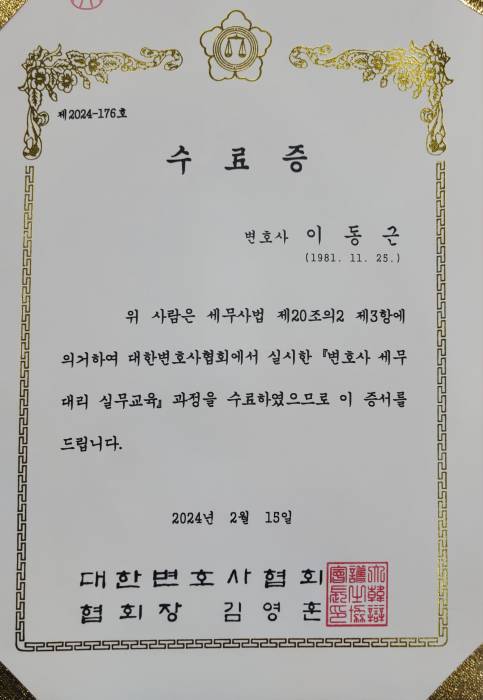 제2024-176호
수 료 증
변호사 이 동 근
(1981. 11. 25.)
위 사람은 세무사법 제20조의2 제3항에
의거하여 대한변호사협회에서 실시한 『변호사 세무
대리 실무교육』 과정을 수료하였으므로 이 증서를
드립니다.
2024년 2월 15일
대한변호사협회
협회장 김영훈